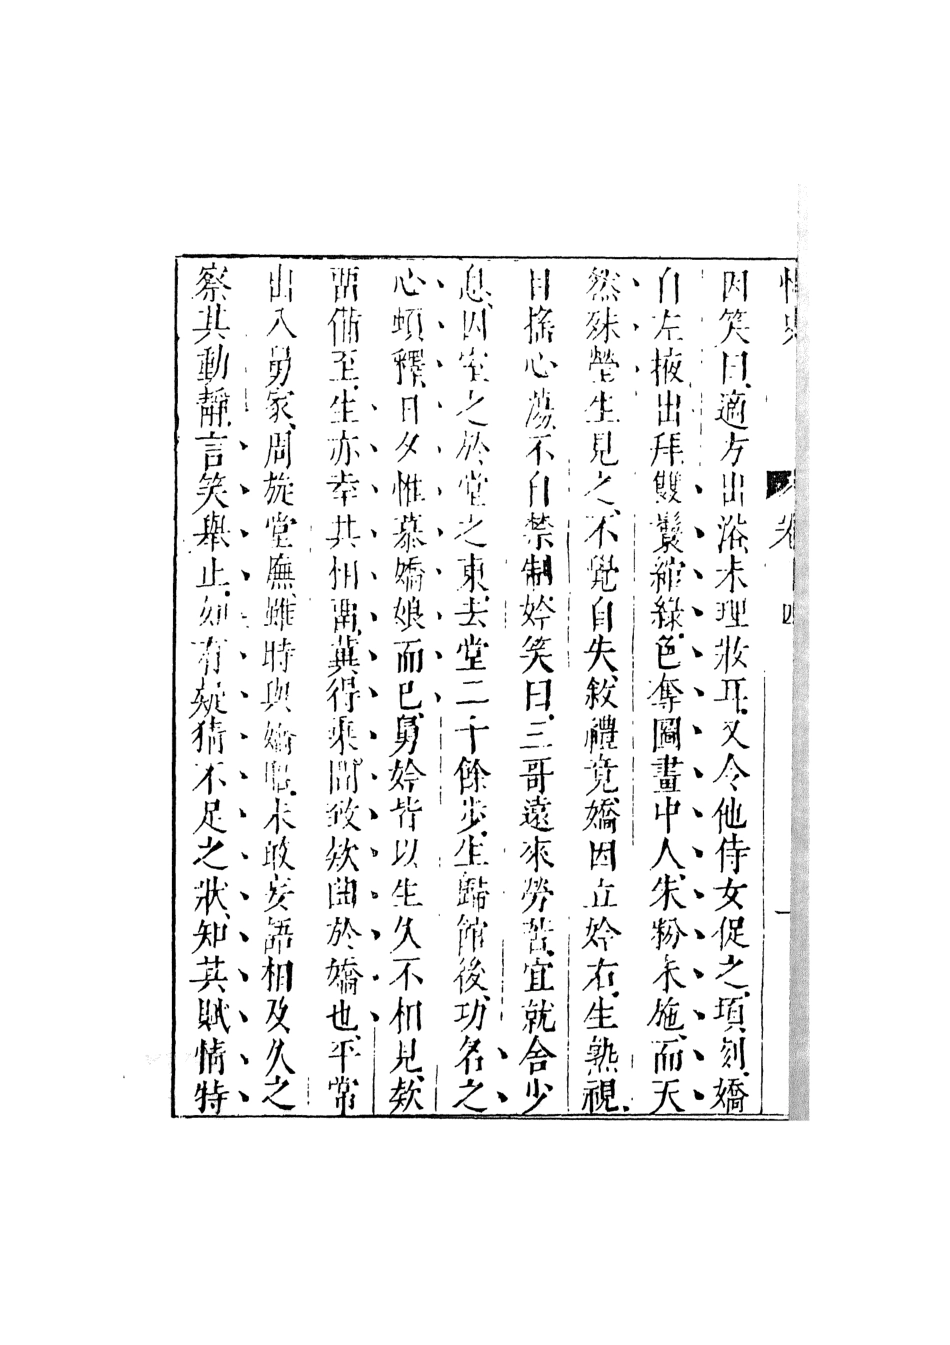 情史 卷十四 一
因笑曰、適方出浴、未理妝耳、又令他侍女促之、項刻、嬌
自左掖出拜、雙鬟綰綠、色奪圖畫中人、朱粉未施、而天
然殊瑩、生見之、不覺自失、敘禮竟、嬌因立妗右、生熟視、
目搖心蕩、不自禁制、妗笑曰、三哥遠來勞苦、宜就舍少
息、因室之於堂之東、去堂二十餘步、生歸館後、功名之
心頓釋、日夕惟慕嬌娘而已、舅妗皆以生久不相見、欵
留備至、生亦幸其相留、冀得乘間致欵曲於嬌也、平常
出入舅家、周旋堂廡、雖時與嬌、未敢妄語相及、久之
察其動靜、言笑舉止、如有疑猜不足之狀、知其賦情特